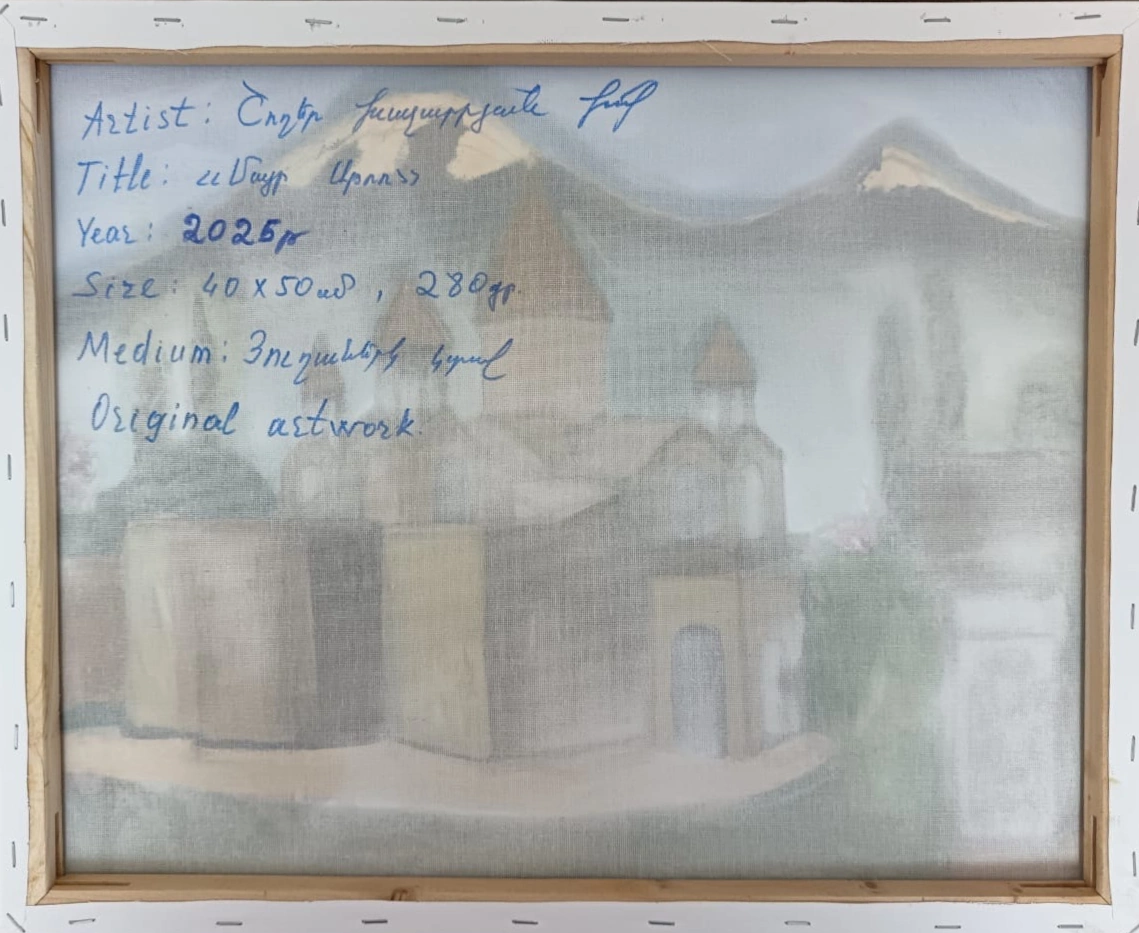 Artist: Շողեր Խաչատրյան
Title: «Մայր Աթոռ»
Year: 2025թ
Size: 40 x 50սմ , 280գր.
Medium: Յուղաներկ կտավ
Original artwork.